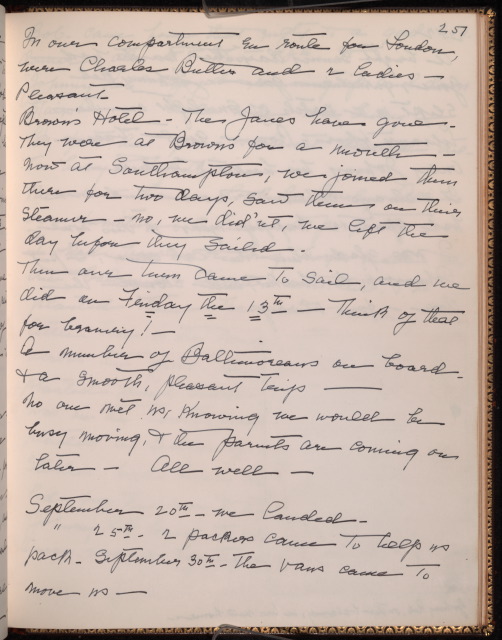 251
In our compartment en route for London,
were Charles Butler and 2 ladies —
Pleasant
Brown's Hotel - The Janes have gone -
They were at Browns for a month —
now at Southampton, we joined them
there for two days, saw them on their
steamer — no, we did'nt, we left the
day before they sailed.
Then our turn came to sail, and we
did on Friday the 13th — Think of that
for bravery! —
A number of Baltimoreans on board -
& a smooth, pleasant trip —
No one met us, knowing we would be
busy moving, & the parents are coming on
later — All well —
September 20th - we landed -
" 25th - 2 packers came to help us
pack - September 30th - the vans came to
move us —